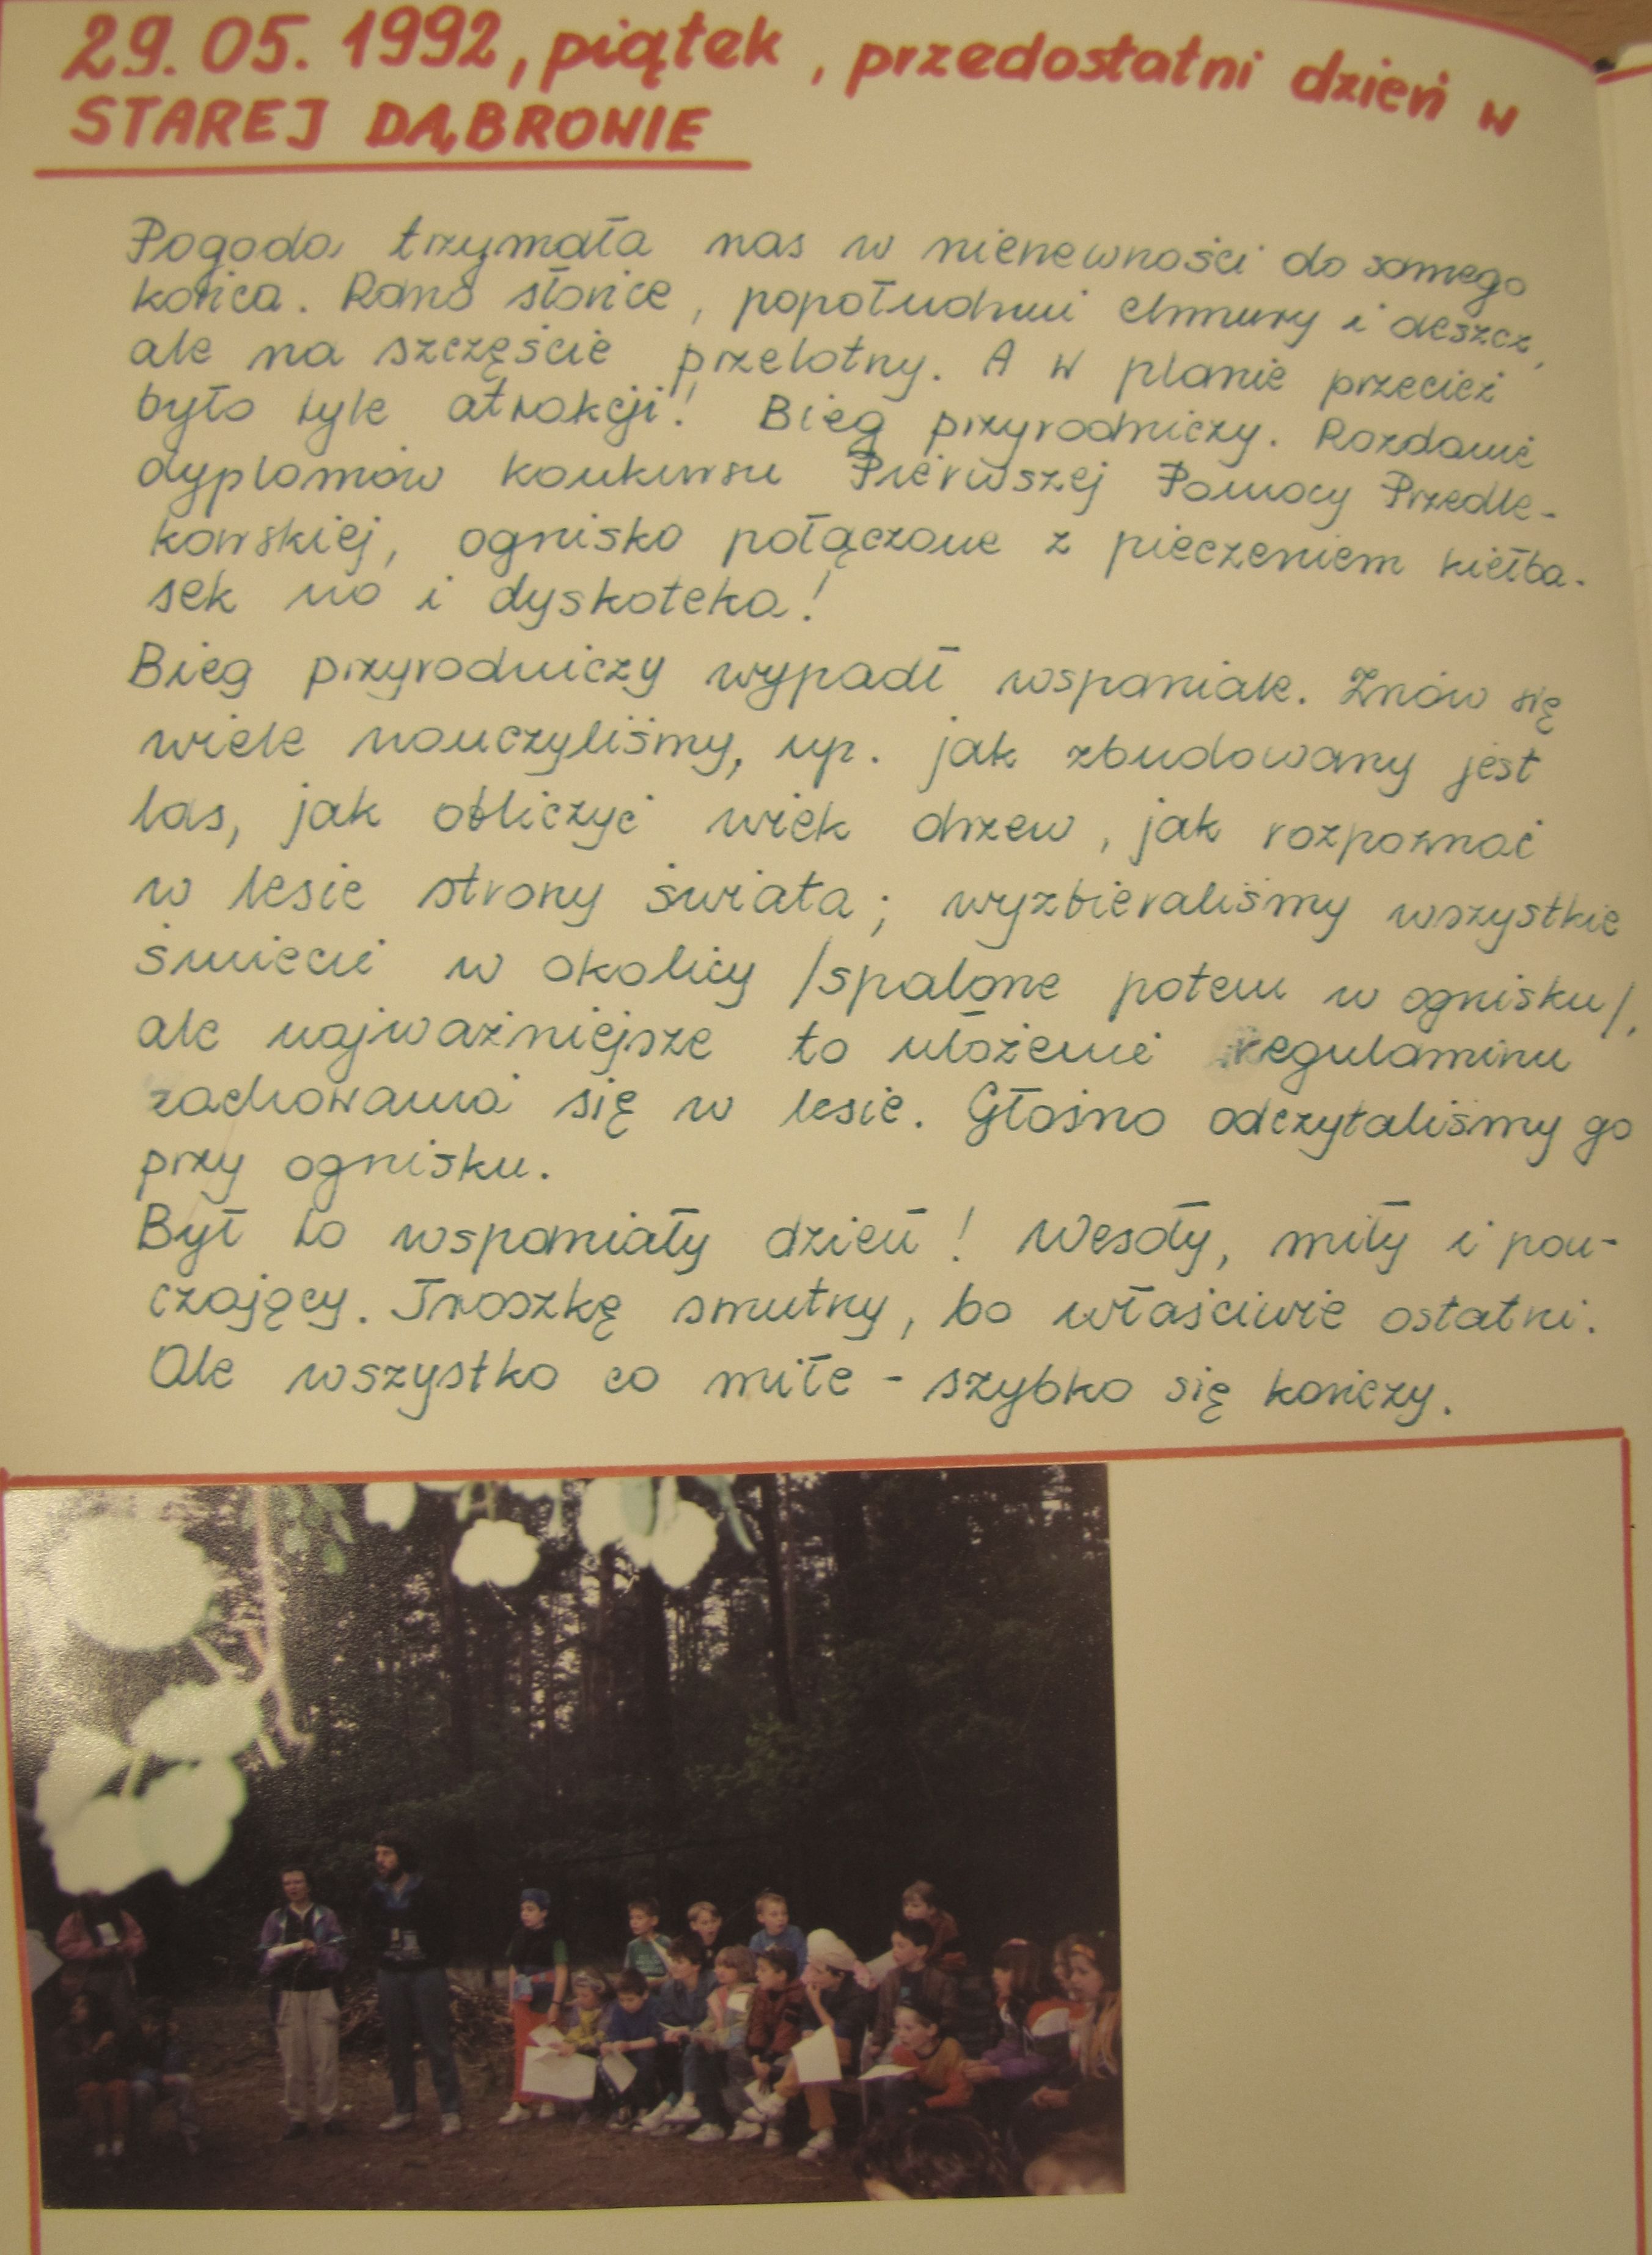 29. 05. 1992, piątek, przedostatni dzień w
STAREJ DĄBROWIE
Pogoda trzymała nas w niepewności do samego
końca. Rano słońce, popołudniu chmury i deszcz,
ale na szczęście przelotny. A w planie przecież
było tyle atrakcji! Bieg przyrodniczy. Rozdanie
dyplomów konkursu Pierwszej Pomocy Przedle-
karskiej, ognisko połączone z pieczeniem kiełba-
sek no i dyskoteka!
Bieg przyrodniczy wypadł wspaniale. Znów się
wiele nauczyliśmy, np. jak zbudowany jest
las, jak obliczyć wiek drzew, jak rozpoznać
w lesie strony świata; wyzbieraliśmy wszystkie
śmieci w okolicy /spalone potem w ognisku/,
ale najważniejsze to ułożenie regulaminu
zachowania się w lesie. Głośno odczytaliśmy go
przy ognisku.
Był to wspaniały dzień! Wesoły, miły i pou-
czający. Troszkę smutny, bo właściwie ostatni.
Ale wszystko co miłe - szybko się kończy.